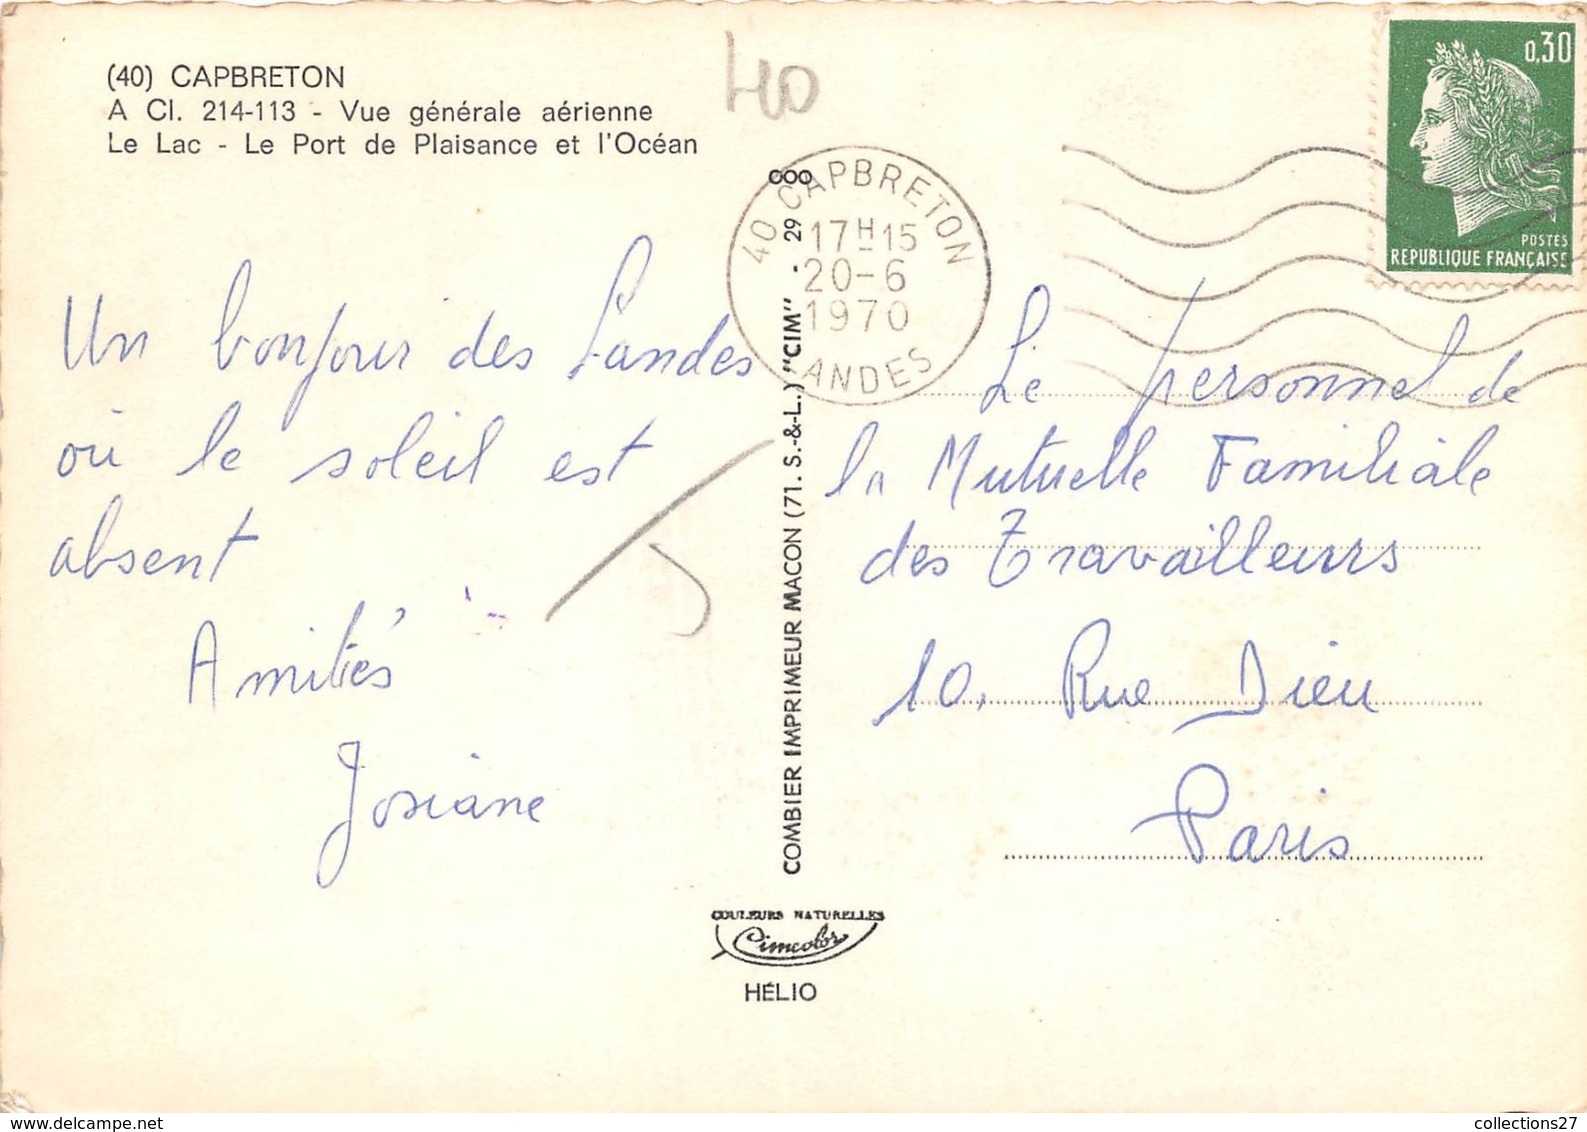 (40) CAPBRETON
A Cl. 214-113 - Vue générale aérienne
Le Lac - Le Port de Plaisance et l'Océan
40
0,30
POSTES
REPUBLIQUE FRANÇAISE
40 CAPBRETON
17H15
20-6
1970
LANDES
Un bonjour des Landes
où le soleil est
absent
Amitiés
Josiane
COMBIER IMPRIMEUR MACON (71. S.-&-L.) "CIM" - 29
Le personnel de
la Mutuelle Familiale
des Travailleurs
10, Rue Dieu
Paris
COULEURS NATURELLES
Cimcolor
HÉLIO
www.delcampe.net
collections27